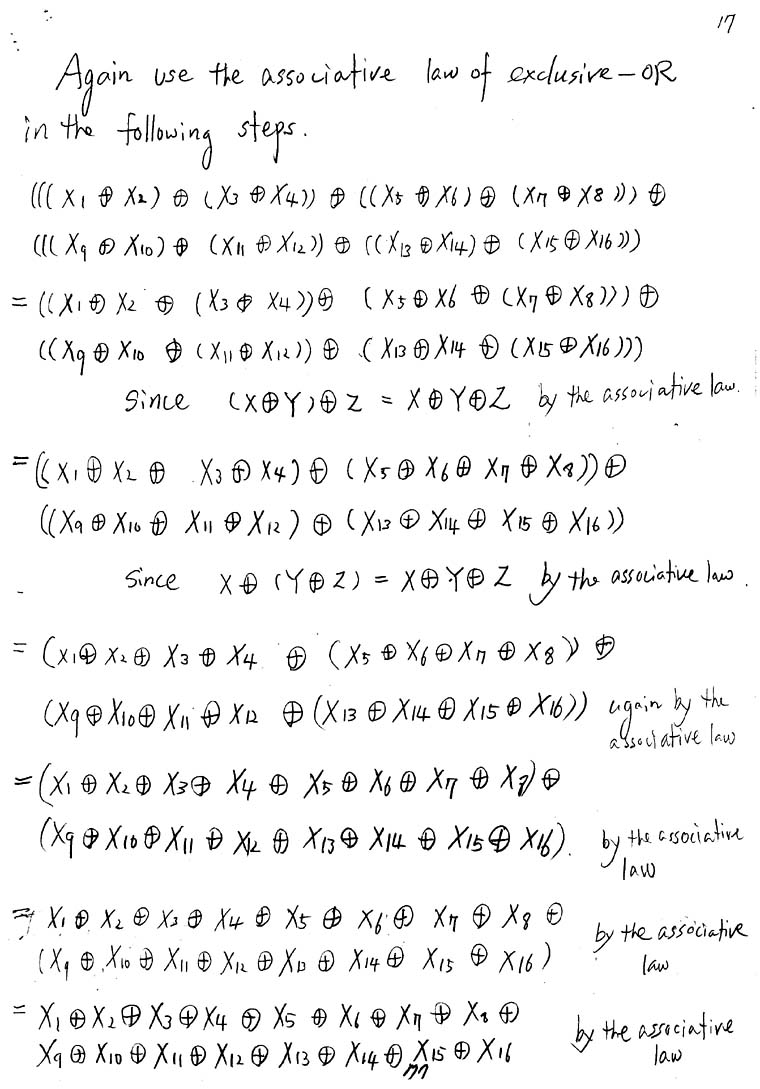 17
Again use the associative law of exclusive-OR
in the following steps.
(((X1 ⊕ X2) ⊕ (X3 ⊕ X4)) ⊕ ((X5 ⊕ X6) ⊕ (X7 ⊕ X8))) ⊕
(((X9 ⊕ X10) ⊕ (X11 ⊕ X12)) ⊕ ((X13 ⊕ X14) ⊕ (X15 ⊕ X16)))
= ((X1 ⊕ X2 ⊕ (X3 ⊕ X4)) ⊕ (X5 ⊕ X6 ⊕ (X7 ⊕ X8))) ⊕
((X9 ⊕ X10 ⊕ (X11 ⊕ X12)) ⊕ (X13 ⊕ X14 ⊕ (X15 ⊕ X16)))
Since (X⊕Y)⊕Z = X⊕Y⊕Z by the associative law.
= ((X1 ⊕ X2 ⊕ X3 ⊕ X4) ⊕ (X5 ⊕ X6 ⊕ X7 ⊕ X8)) ⊕
((X9 ⊕ X10 ⊕ X11 ⊕ X12) ⊕ (X13 ⊕ X14 ⊕ X15 ⊕ X16))
Since X⊕(Y⊕Z) = X⊕Y⊕Z by the associative law.
= (X1 ⊕ X2 ⊕ X3 ⊕ X4 ⊕ (X5 ⊕ X6 ⊕ X7 ⊕ X8)) ⊕
(X9 ⊕ X10 ⊕ X11 ⊕ X12 ⊕ (X13 ⊕ X14 ⊕ X15 ⊕ X16)) again by the
associative law
= (X1 ⊕ X2 ⊕ X3 ⊕ X4 ⊕ X5 ⊕ X6 ⊕ X7 ⊕ X8) ⊕
(X9 ⊕ X10 ⊕ X11 ⊕ X12 ⊕ X13 ⊕ X14 ⊕ X15 ⊕ X16). by the associative
law
= X1 ⊕ X2 ⊕ X3 ⊕ X4 ⊕ X5 ⊕ X6 ⊕ X7 ⊕ X8 ⊕
(X9 ⊕ X10 ⊕ X11 ⊕ X12 ⊕ X13 ⊕ X14 ⊕ X15 ⊕ X16) by the associative
law
= X1 ⊕ X2 ⊕ X3 ⊕ X4 ⊕ X5 ⊕ X6 ⊕ X7 ⊕ X8 ⊕
X9 ⊕ X10 ⊕ X11 ⊕ X12 ⊕ X13 ⊕ X14 ⊕ X15 ⊕ X16 by the associative
law